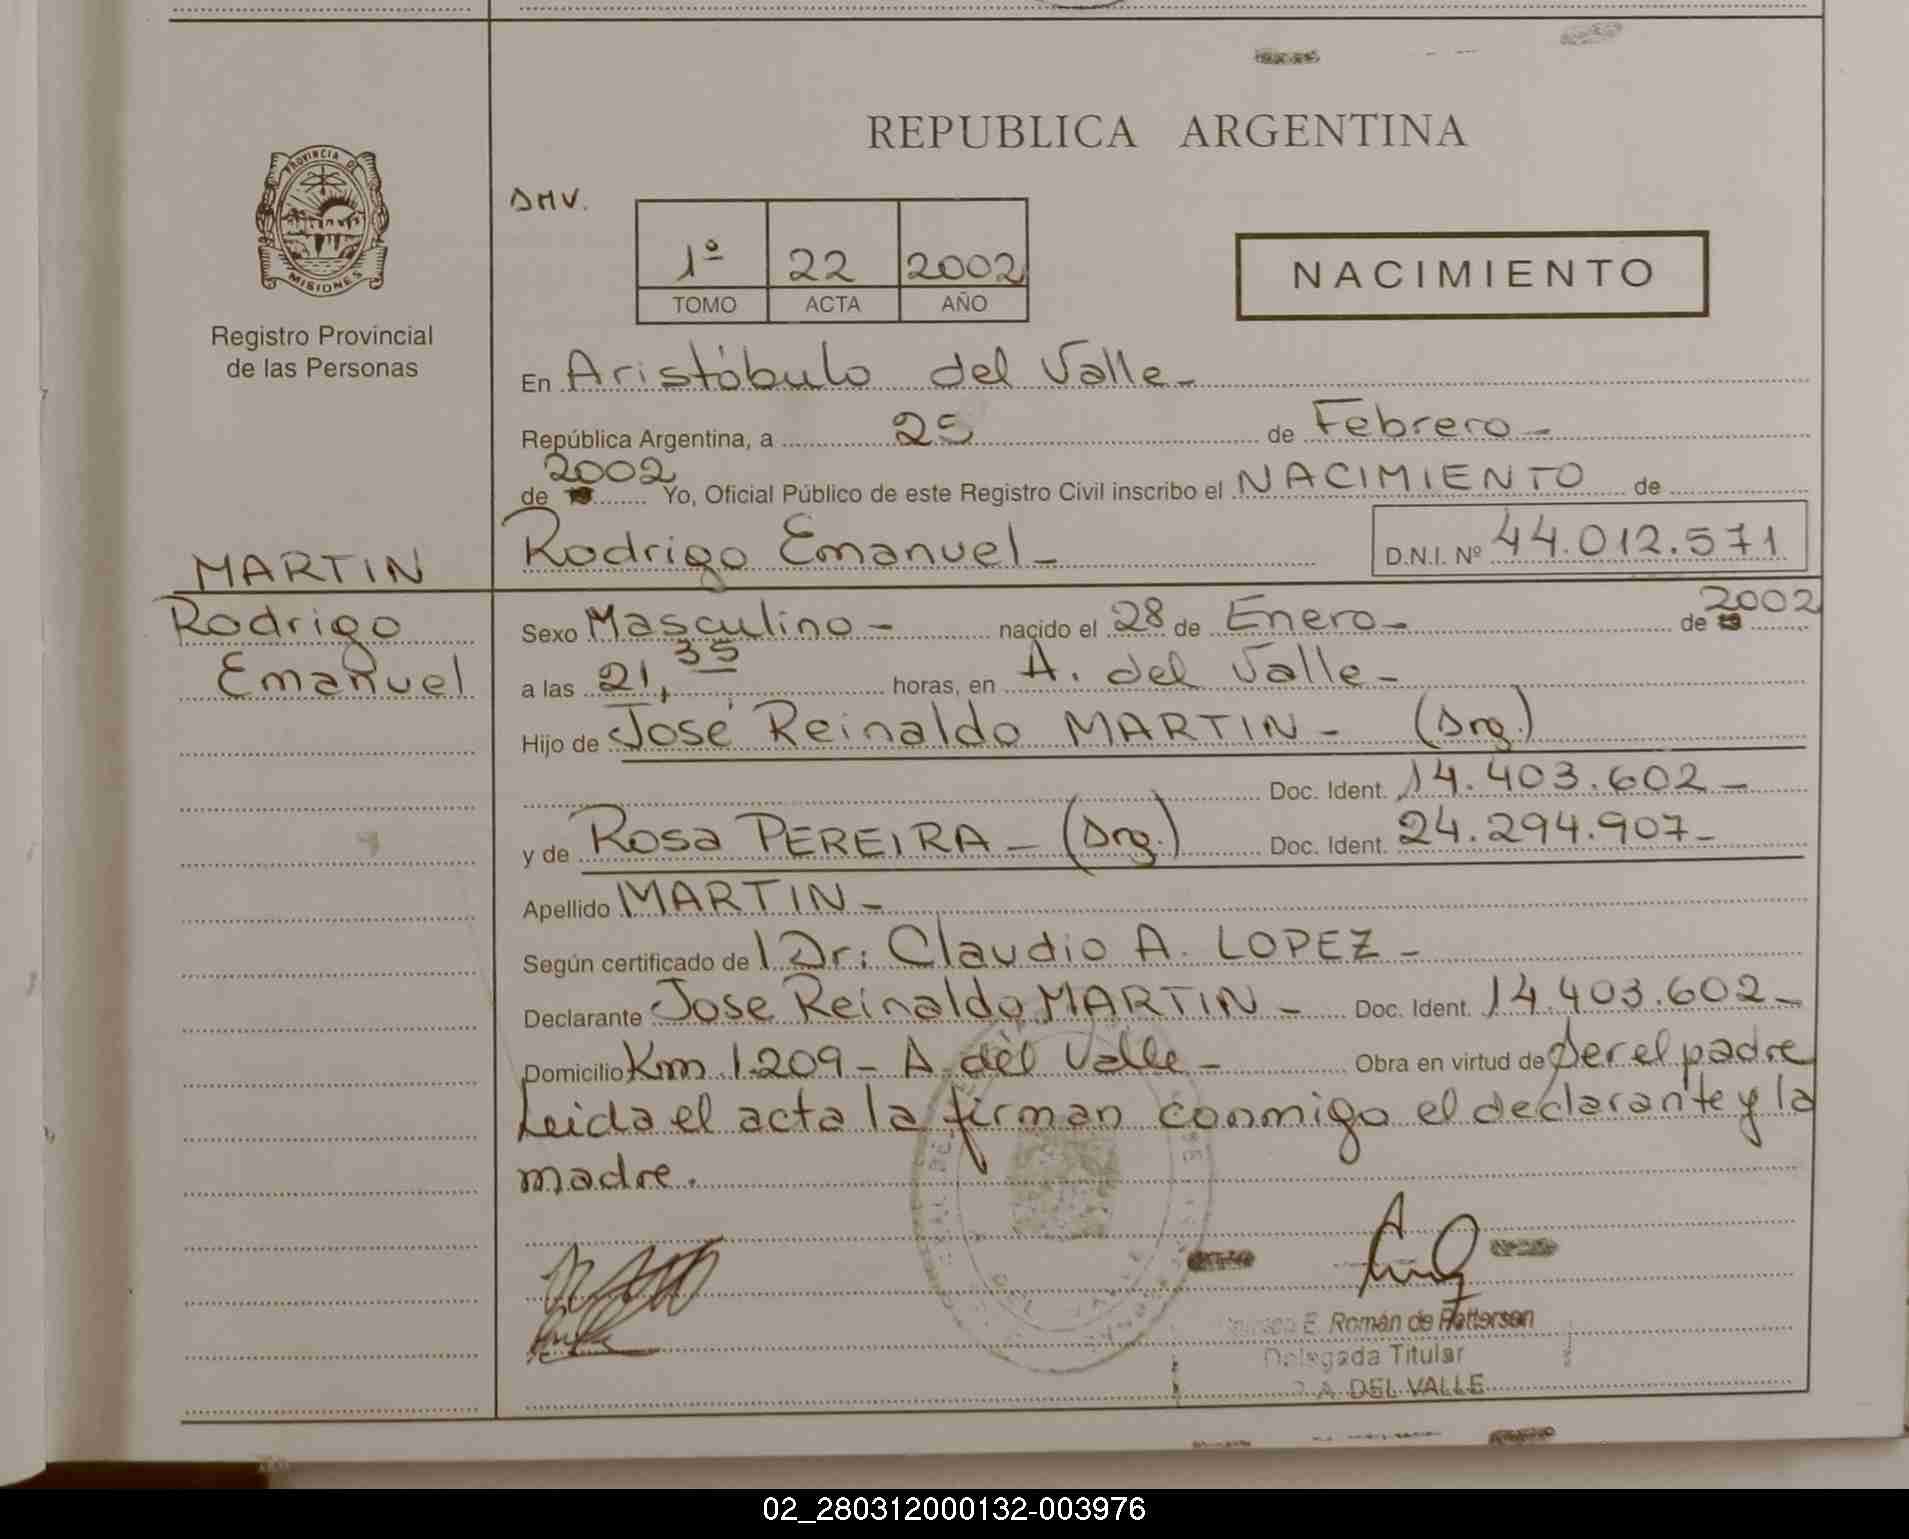 REPUBLICA ARGENTINA
PROVINCIA DE
MISIONES
Registro Provincial
de las Personas
DMV.
1º 22 2002
TOMO ACTA AÑO
NACIMIENTO
En Aristóbulo del Valle-
República Argentina, a 25 de Febrero-
de 2002 Yo, Oficial Público de este Registro Civil inscribo el NACIMIENTO de
Rodrigo Emanuel- D.N.I. Nº 44.012.571
MARTIN
Rodrigo
Emanuel
Sexo Masculino- nacido el 28 de Enero- de 2002
a las 21,35 horas, en A. del Valle-
Hijo de José Reinaldo MARTIN- (Arg.)
Doc. Ident. 14.403.602-
y de Rosa PEREIRA- (Arg.) Doc. Ident. 24.294.907-
Apellido MARTIN-
Según certificado de Dr: Claudio A. LOPEZ-
Declarante Jose Reinaldo MARTIN- Doc. Ident. 14.403.602-
Domicilio Km 1.209- A. del Valle- Obra en virtud de ser el padre
Leida el acta la firman conmigo el declarante y la
madre.
E. Román de Petterson
Delegada Titular
A. DEL VALLE
02_280312000132-003976